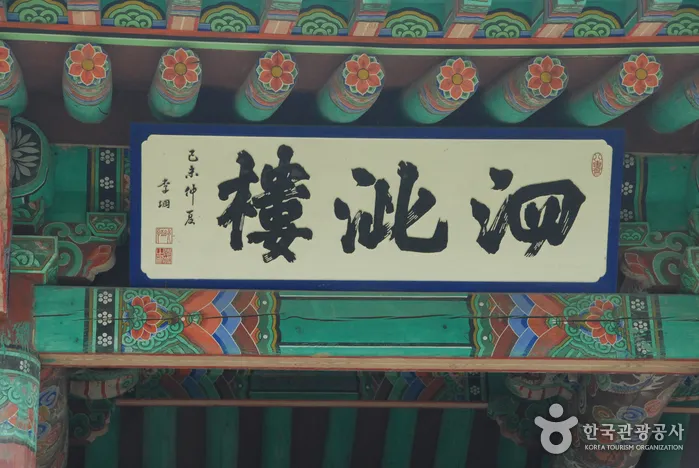 泗沘樓
己未仲夏
李坰
한국관광공사
KOREA TOURISM ORGANIZATION